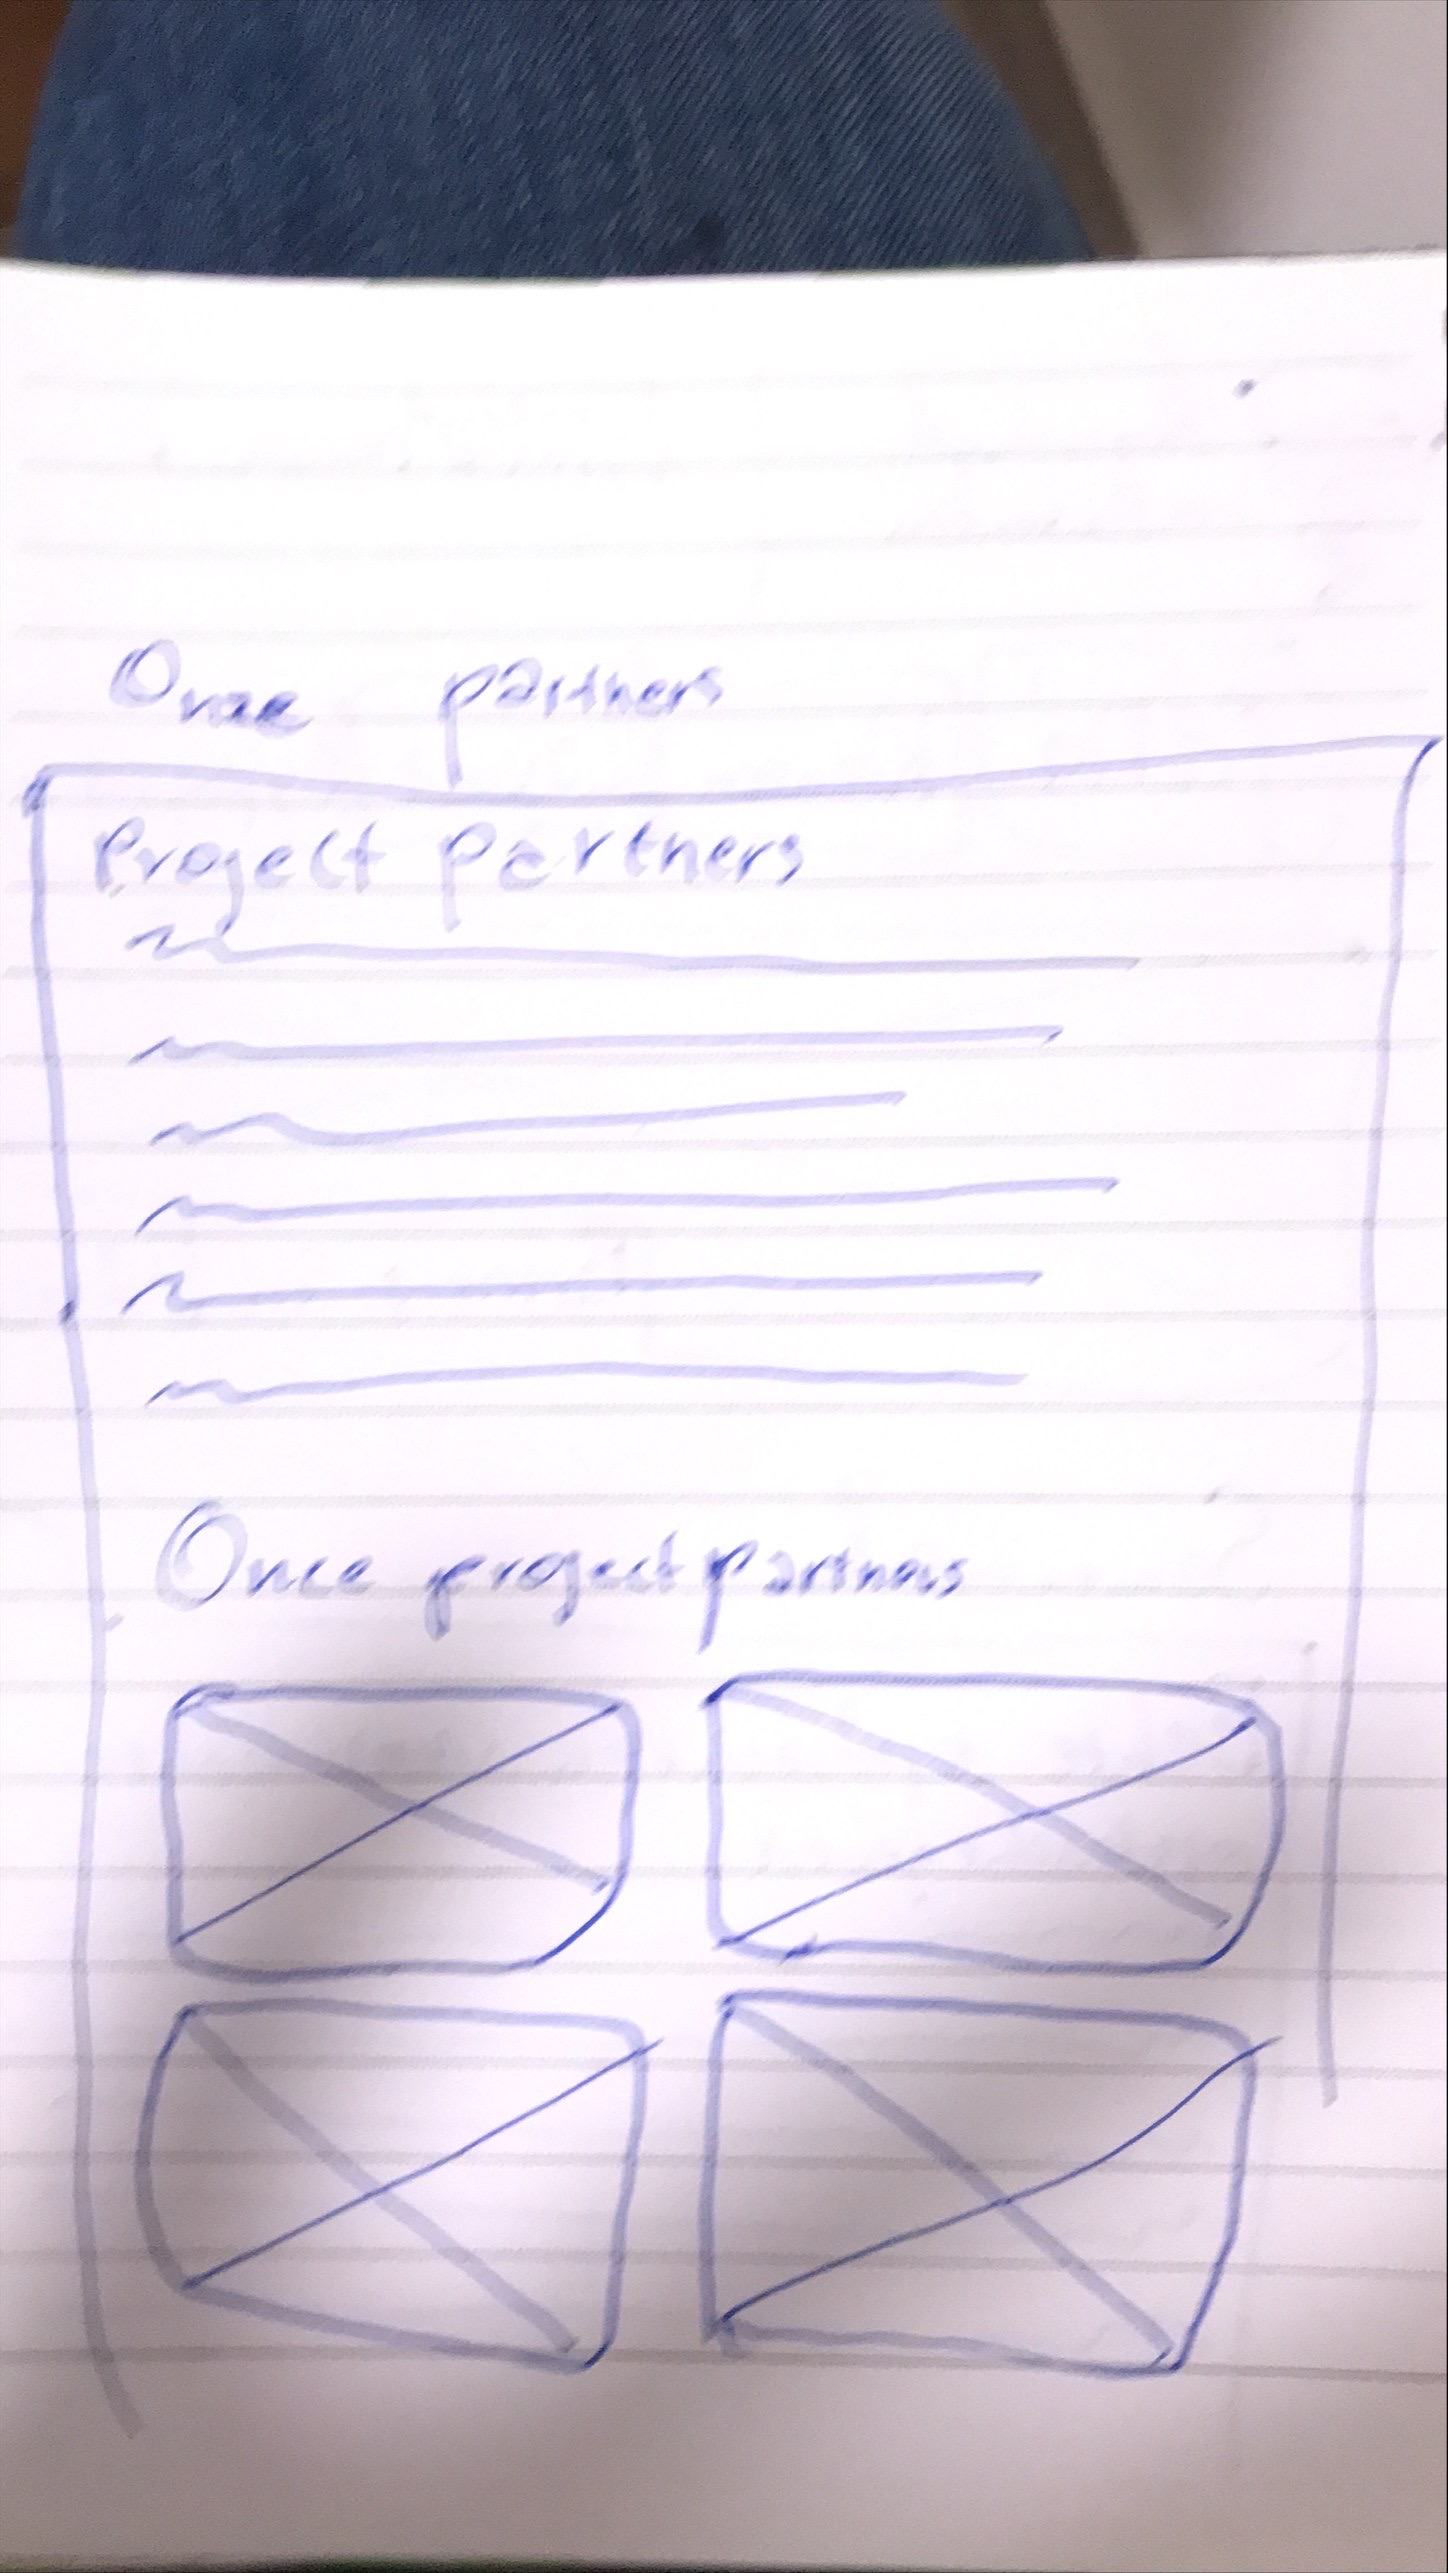 partners
Project partners
Once project partners